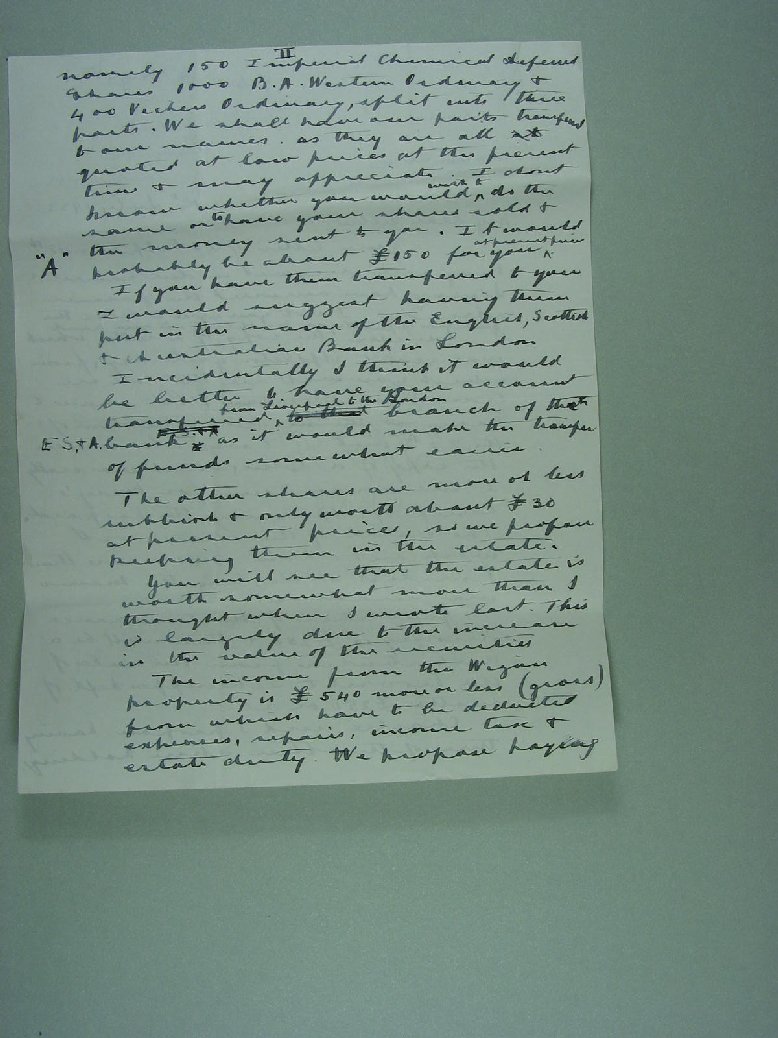 II
namely 150 Imperial Chemical Deferred
Shares 1000 B.A. Western Ordinary &
400 Vickers Ordinary, split into three
parts. We shall have our parts transferred
to our names. as they are all
quoted at low prices at the present
time & may appreciate. I about
know whether you would, wish to do the
same or to have your shares sold &
the money sent to you. It would
"A" probably be about £150 for you at present prices
If you have them transferred to you
I would suggest having them
put in the name of the English, Scottish
& Australian Bank in London
Incidentally I think it would
be better to have your account
transferred from Liverpool to the London branch of the
E S, & A. bank as it would make the transfer
of funds somewhat easier.
The other shares are more or less
rubbish & only worth about £30
at present prices, so we propose
keeping them in the estate.
You will see that the estate is
worth somewhat more than I
thought when I wrote last. This
is largely due to the increase
in the value of the securities
The income from the Wigan
property is £540 more or less (gross)
from which have to be deducted
expenses, repairs, income tax &
estate duty. We propose paying